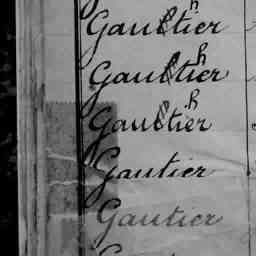 Gaulthier
Gaulthier
Gaulthier
Gautier
Gautier